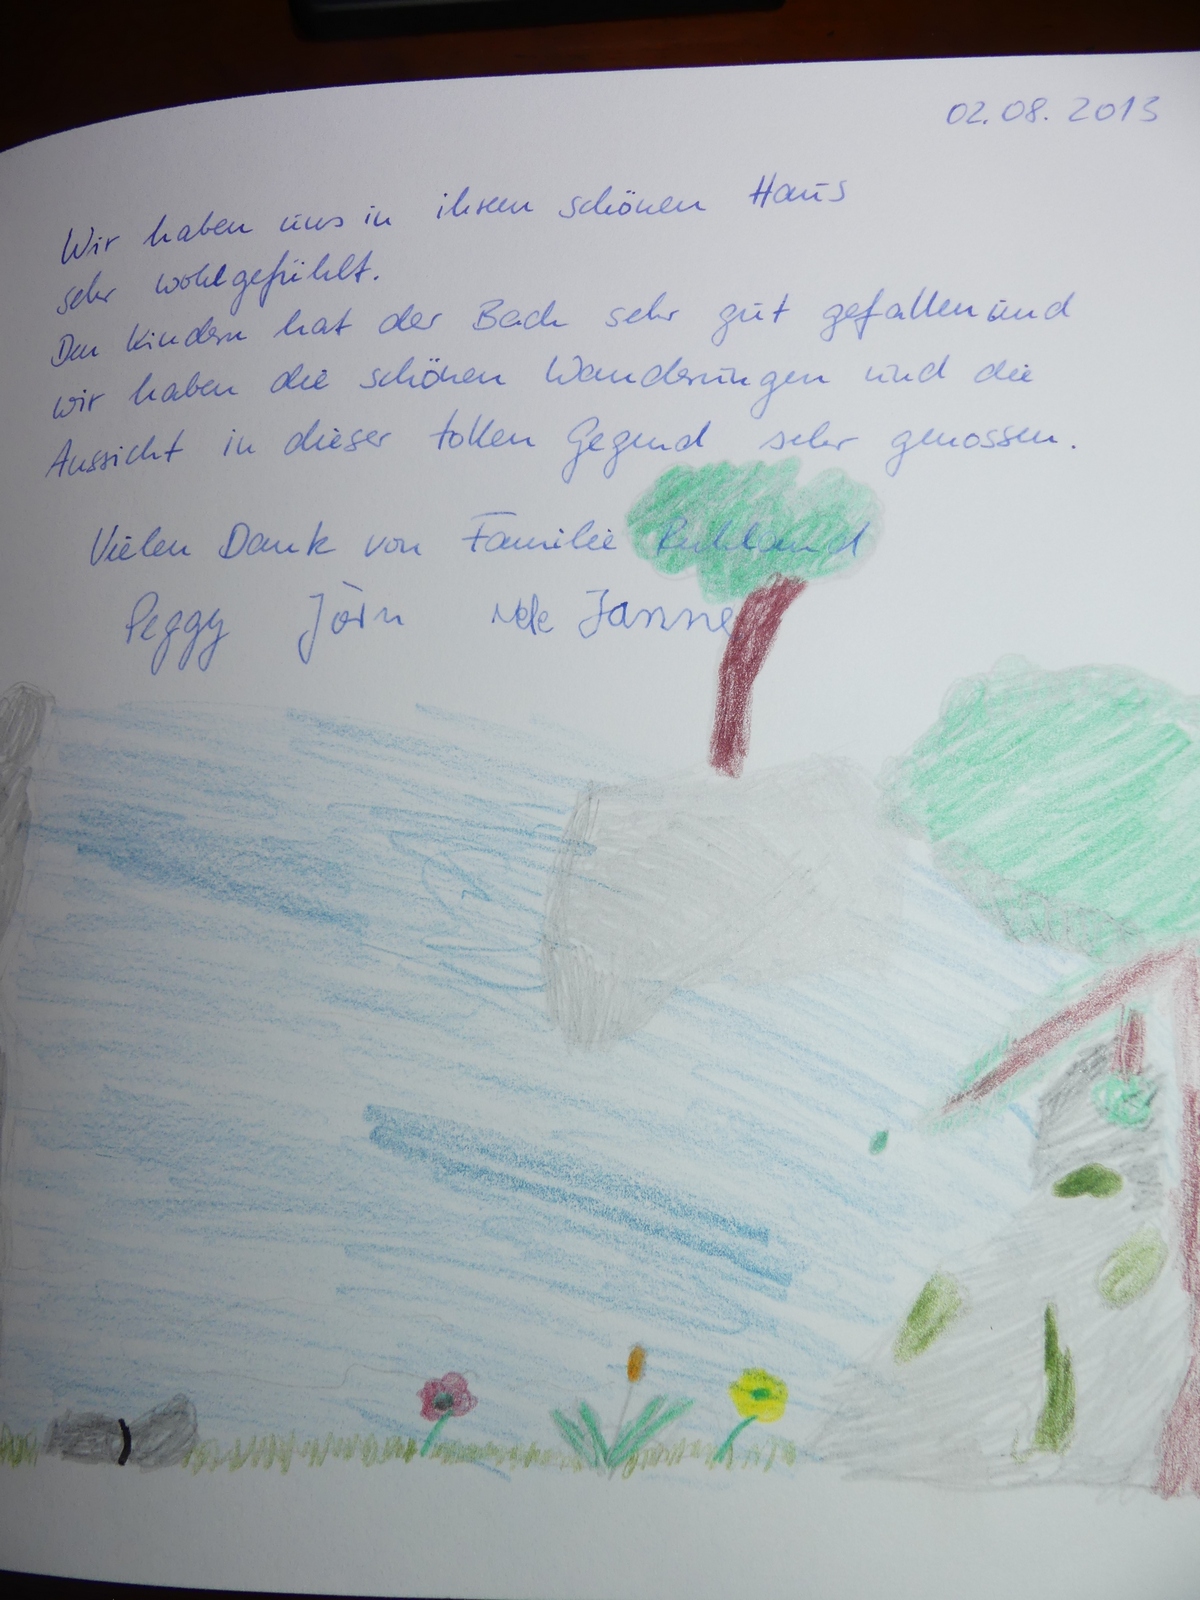 02.08.2013
Wir haben uns in ihrem schönen Haus
sehr wohlgefühlt.
Den Kindern hat der Bach sehr gut gefallen und
wir haben die schönen Wanderungen und die
Aussicht in dieser tollen Gegend sehr genossen.
Vielen Dank von Familie Ruhland
Peggy Jörn Nele Janne